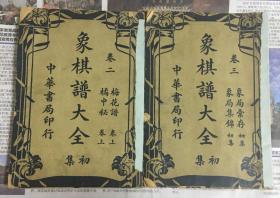 卷三
象局彙存 初集
象局集錦 初集
象棋譜大全
初集
中華書局印行
卷二
梅花譜 卷上
橘中秘 卷上
象棋譜大全
初集
中華書局印行